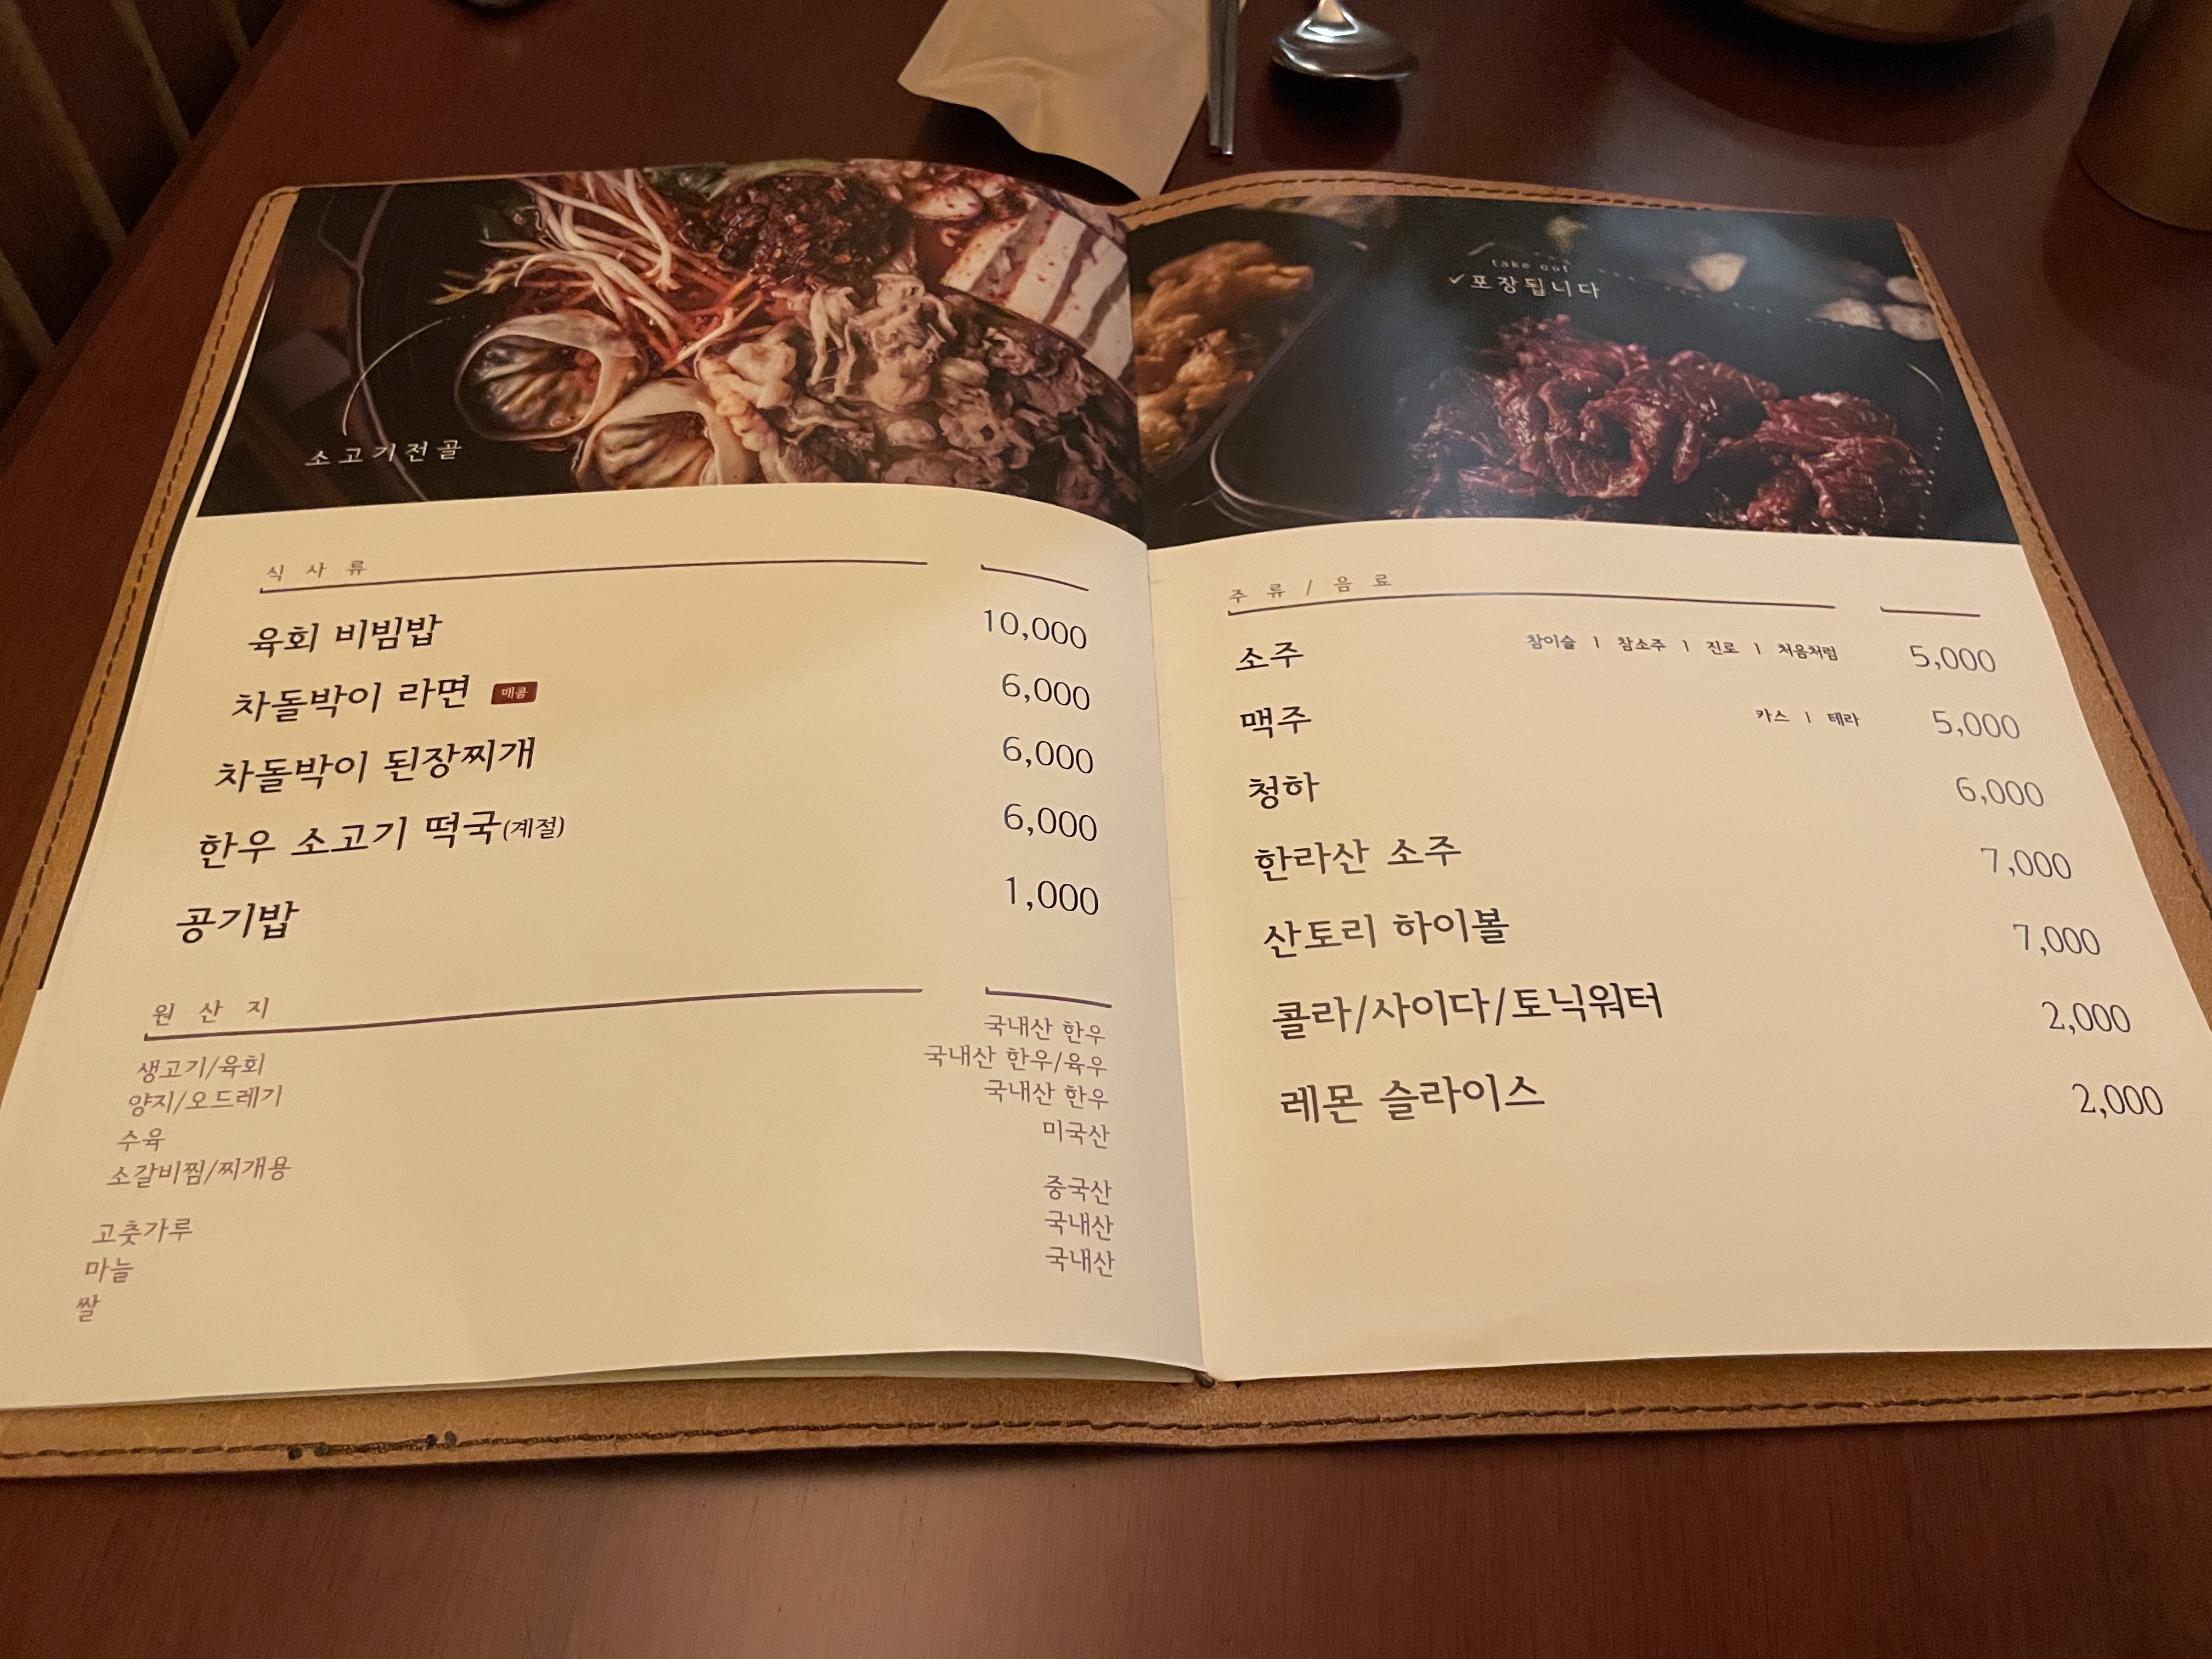 소고기전골
식사류
육회 비빔밥 10,000
차돌박이 라면 매콤 6,000
차돌박이 된장찌개 6,000
한우 소고기 떡국(계절) 6,000
공기밥 1,000
원산지
생고기/육회 국내산 한우
양지/오드레기 국내산 한우/육우
수육 국내산 한우
소갈비찜/찌개용 미국산
고춧가루 중국산
마늘 국내산
쌀 국내산
take out
✓포장됩니다
주류/음료
소주 참이슬 | 참소주 | 진로 | 처음처럼 5,000
맥주 카스 | 테라 5,000
청하 6,000
한라산 소주 7,000
산토리 하이볼 7,000
콜라/사이다/토닉워터 2,000
레몬 슬라이스 2,000